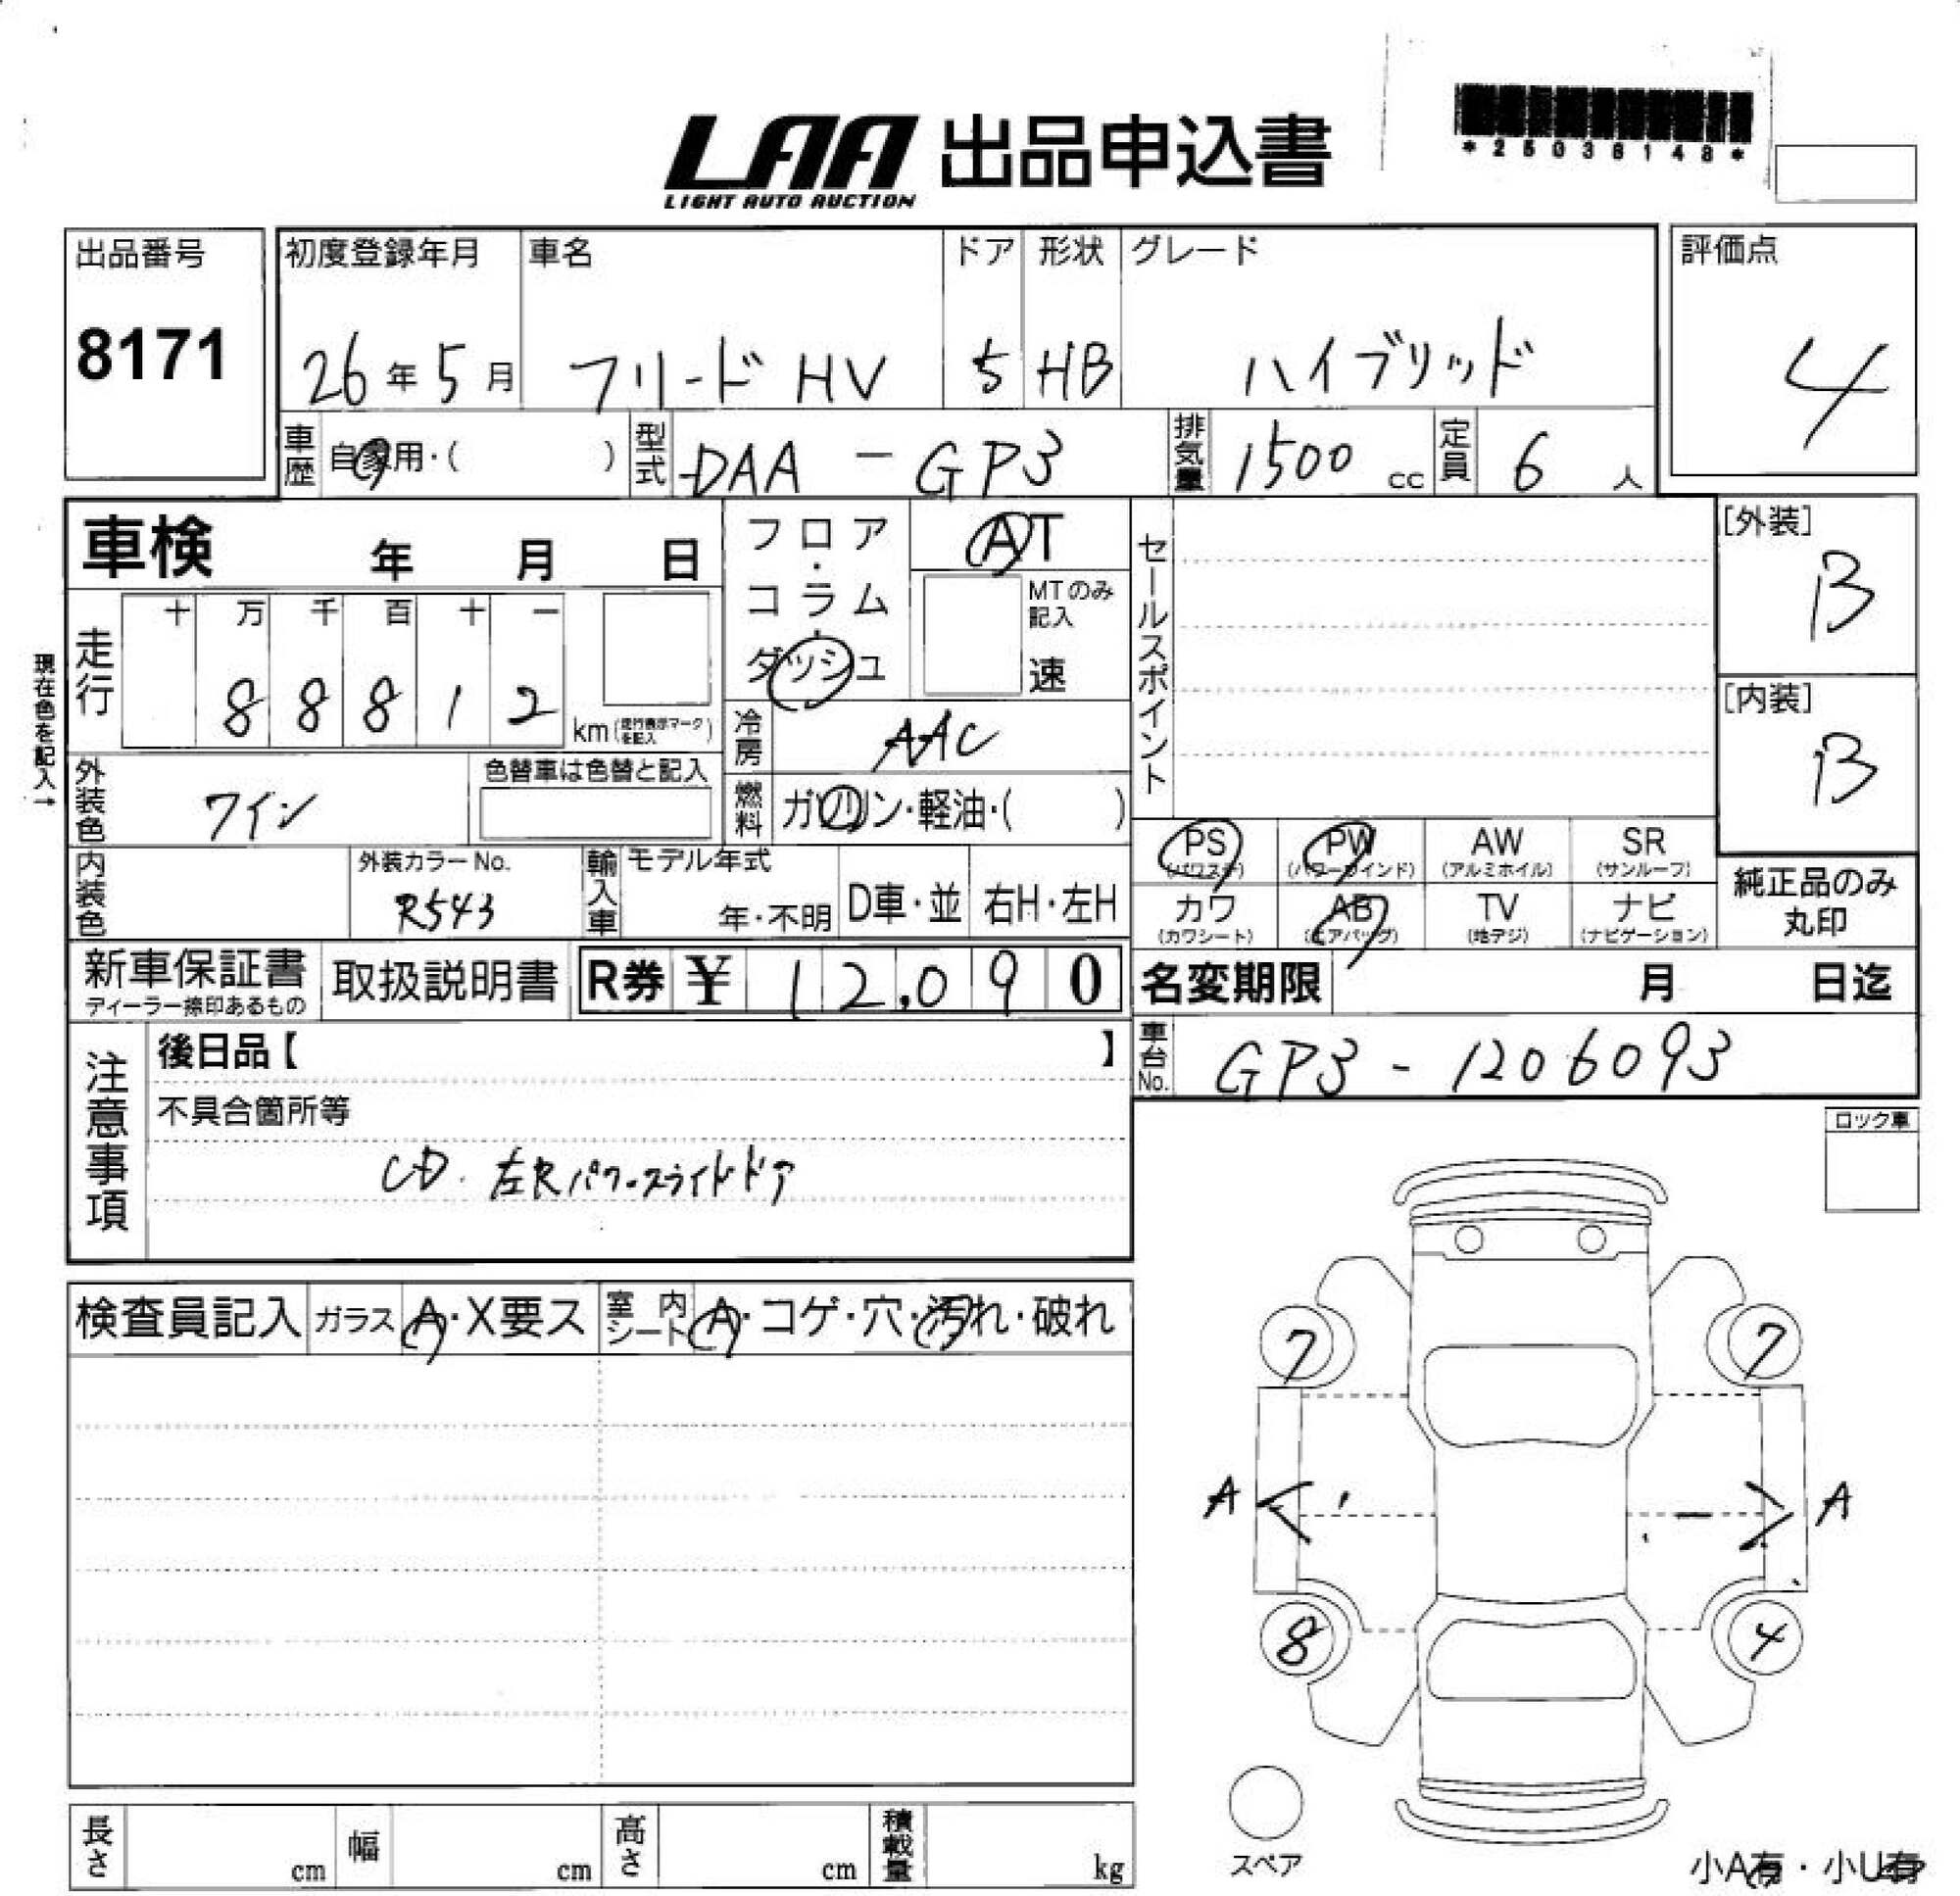 LAA 出品申込書
LIGHT AUTO AUCTION
*25036148*
出品番号
8171
初度登録年月
26年5月
車名
フリードHV
ドア
5
形状
HB
グレード
ハイブリッド
評価点
4
車歴 自家用・( )
型式 DAA-GP3
排気量 1500 cc
定員 6 人
車検 年 月 日
フロア・コラム・ダッシュ
AT
MTのみ記入
速
セールスポイント
[外装]
B
[内装]
B
現在色を記入→
走行
十 万 千 百 十 一
8 8 8 1 2
km(走行表示マークを記入)
冷房 AAC
燃料 ガソリン・軽油・( )
外装色 ワイン
色替車は色替と記入
内装色
外装カラーNo.
R543
輸入車
モデル年式
年・不明
D車・並
右H・左H
PS
(パワステ)
PW
(パワーウインド)
AW
(アルミホイル)
SR
(サンルーフ)
カワ
(カワシート)
AB
(エアバッグ)
TV
(地デジ)
ナビ
(ナビゲーション)
純正品のみ
丸印
新車保証書
ディーラー捺印あるもの
取扱説明書
R券 ¥ 12,090
名変期限 月 日迄
車台No. GP3-1206093
注意事項
後日品【 】
不具合箇所等
CD. 左右パワースライドドア
ロック車
検査員記入
ガラス A・X要ス
室内シート A・コゲ・穴・汚れ・破れ
7
7
A
A
8
4
スペア
長さ cm
幅 cm
高さ cm
積載量 kg
小A有・小U有